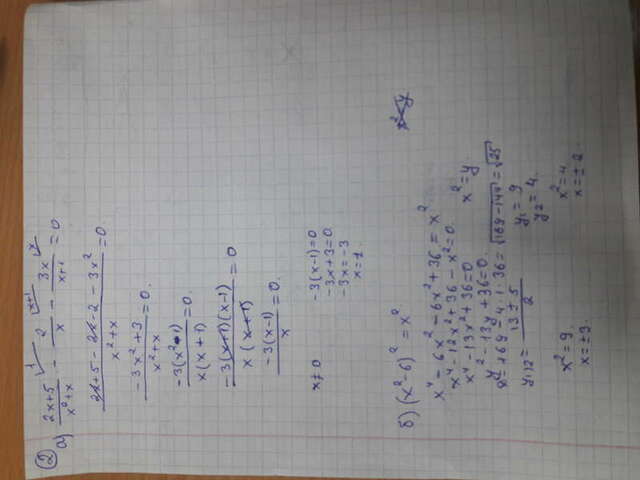 ② а) (2x+5)/(x²+x) - 2/x - 3x/(x+1) = 0
1 x+1 x
(2x+5-2x-2-3x²)/(x²+x) = 0
(-3x²+3)/(x²+x) = 0.
-3(x²-1)/(x(x+1)) = 0.
-3(x+1)(x-1)/(x(x+1)) = 0
-3(x-1)/x = 0.
x≠0 -3(x-1)=0
-3x+3=0
-3x=-3
x=1.
б) (x²-6)² = x²
x⁴-6x²-6x²+36 = x²
x⁴-12x²+36-x²=0
x⁴-13x²+36=0 x²=y.
y²-13y+36=0.
D=169-4·1·36=√169-144=√25
y₁,₂=(13±5)/2 y₁=9
y₂=4.
x²=9. x²=4
x=±3. x=±2.